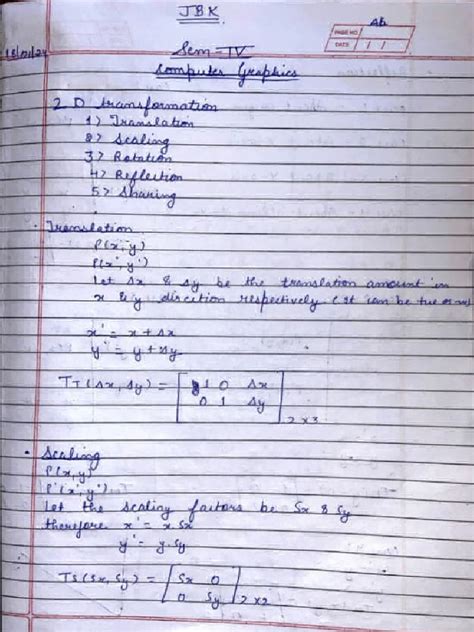 JBK
Ab
PAGE NO.
DATE / /
Sem-IV
Computer Graphics
2 D transformation
1) Translation
2) Scaling
3) Rotation
4) Reflection
5) Sharing
Translation
P(x, y)
P(x', y')
Let Δx & Δy be the translation amount in
x & y direction respectively (It can be +ve or
x' = x + Δx
y' = y + Δy
TT(Δx, Δy) = [ 1 0 Δx
0 1 Δy ] 2x3
• Scaling
P(x, y)
P'(x', y')
Let the scaling factors be Sx & Sy
therefore x' = x Sx
y' = y. Sy
TS(Sx, Sy) = [ Sx 0
0 Sy ] 2x2